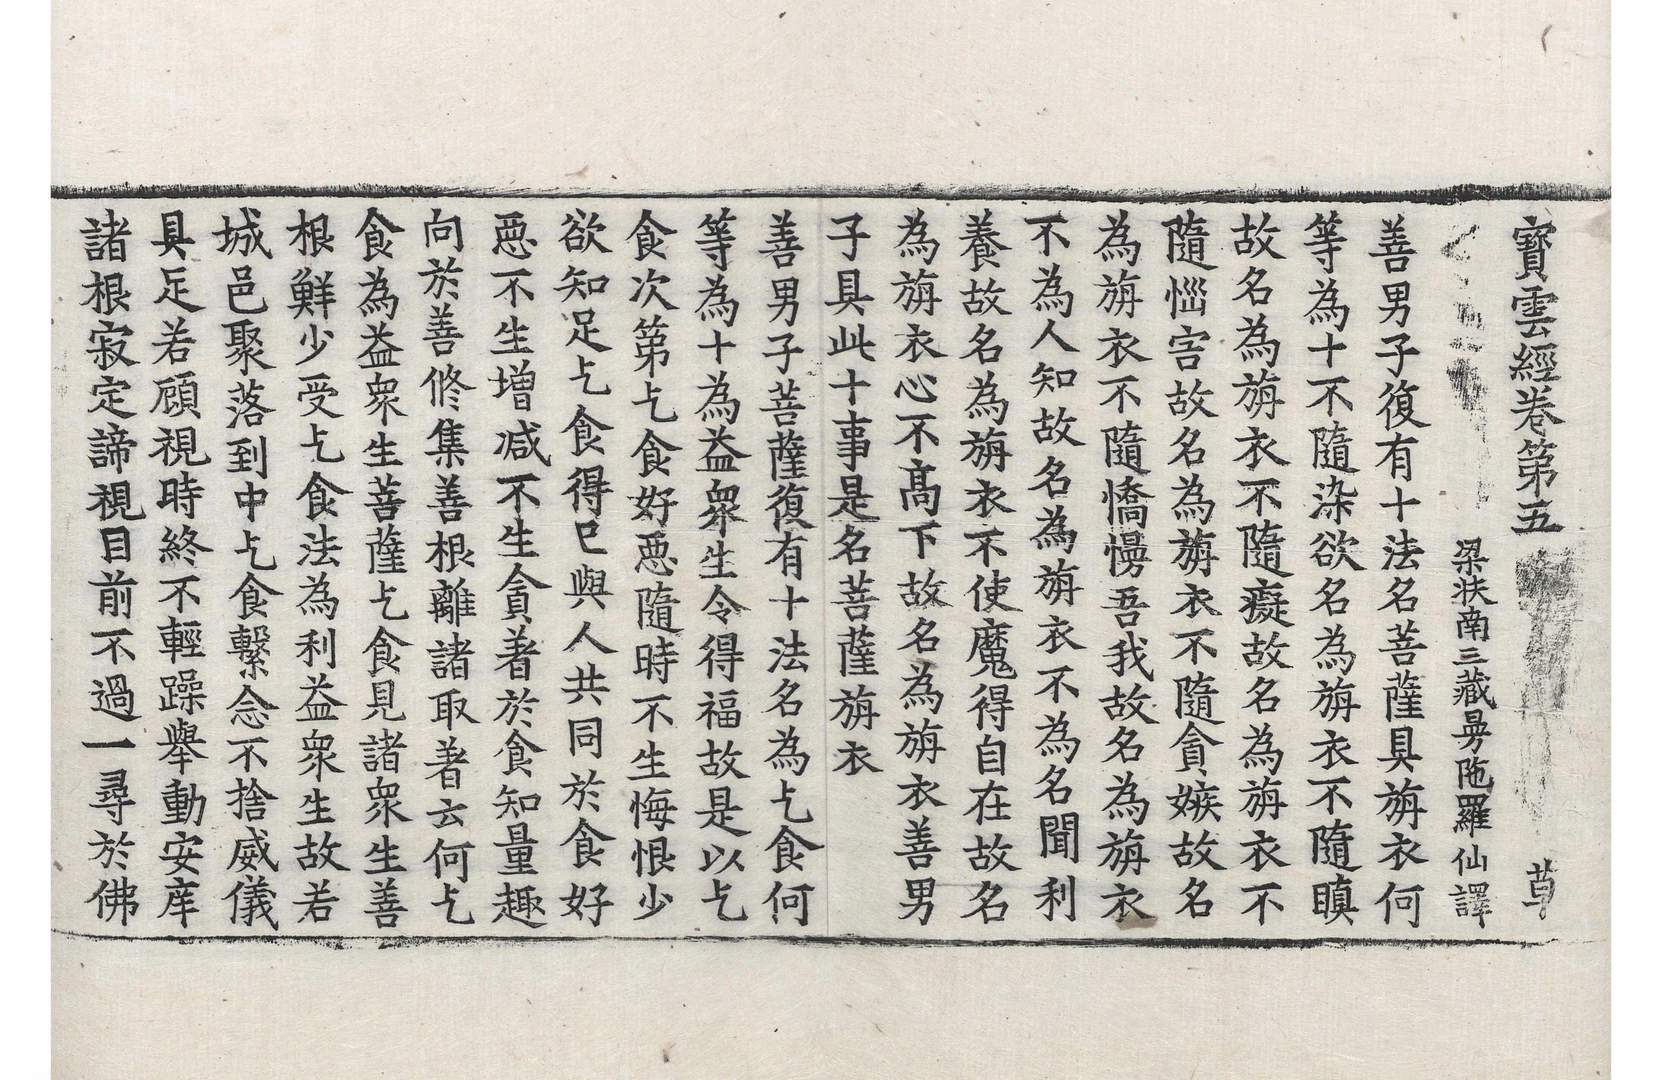 寶雲經卷第五 草
梁扶南三藏曼陁羅仙譯
善男子復有十法名菩薩具旃衣何
等為十不隨染欲名為旃衣不隨瞋
故名為旃衣不隨癡故名為旃衣不
隨惱害故名為旃衣不隨貪嫉故名
為旃衣不隨憍慢吾我故名為旃衣
不為人知故名為旃衣不為名聞利
養故名為旃衣不使魔得自在故名
為旃衣心不髙下故名為旃衣善男
子具此十事是名菩薩旃衣
善男子菩薩復有十法名為乞食何
等為十為益衆生令得福故是以乞
食次第乞食好惡隨時不生悔恨少
欲知足乞食得已與人共同於食好
惡不生增减不生貪著於食知量趣
向於善修集善根離諸取著云何乞
食為益衆生菩薩乞食見諸衆生善
根鮮少受乞食法為利益衆生故若
城邑聚落到中乞食繫念不捨威儀
具足若顧視時終不輕躁舉動安庠
諸根寂定諦視目前不過一尋於佛